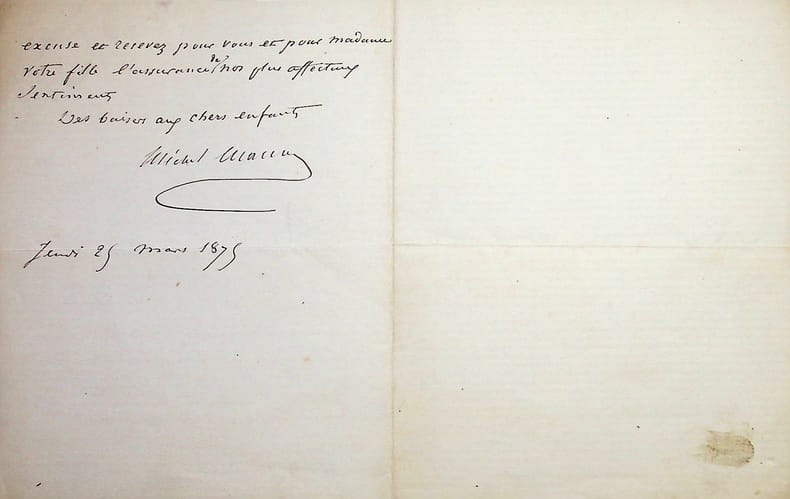 excuse et recevez pour vous et pour madame
votre fille l'assurance de nos plus affectueux
sentiments
Des baisers aux chers enfants
Michel
Jeudi 25 mars 1875